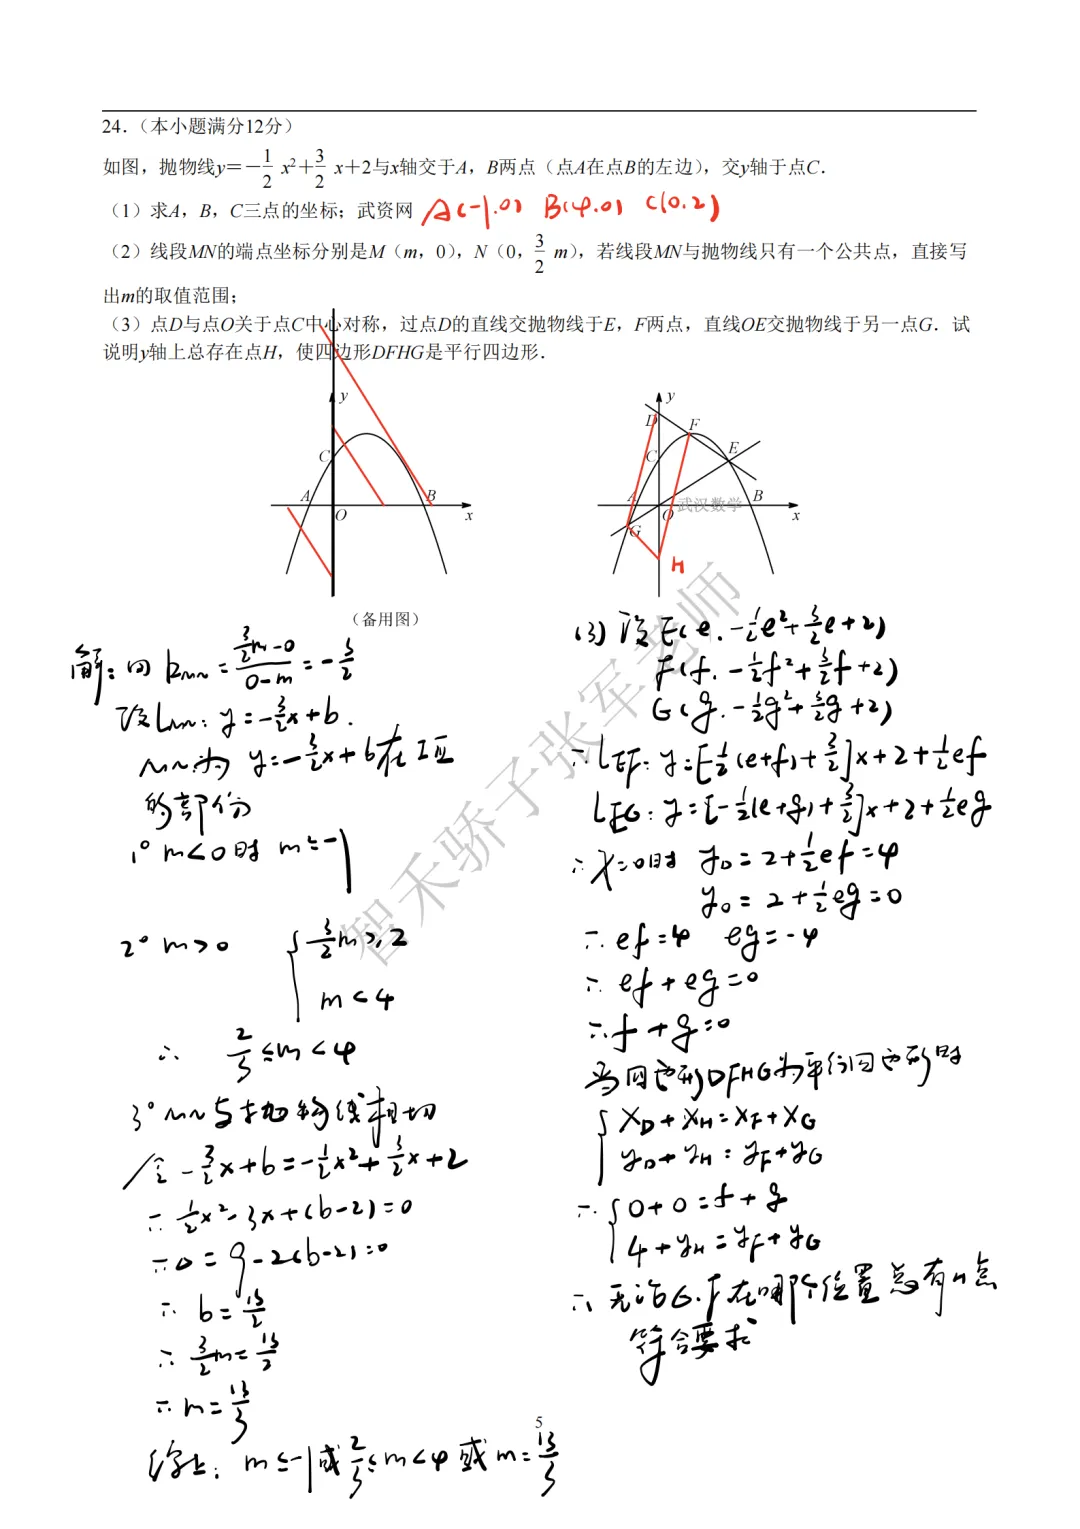 24.（本小题满分12分）
如图，抛物线y＝－1/2 x²＋3/2 x＋2与x轴交于A，B两点（点A在点B的左边），交y轴于点C．
（1）求A，B，C三点的坐标；武资网 A(-1.0) B(4.0) C(0.2)
（2）线段MN的端点坐标分别是M（m，0），N（0，3/2 m），若线段MN与抛物线只有一个公共点，直接写
出m的取值范围；
（3）点D与点O关于点C中心对称，过点D的直线交抛物线于E，F两点，直线OE交抛物线于另一点G．试
说明y轴上总存在点H，使四边形DFHG是平行四边形．
y
C
A
B
O
x
y
D
F
C
E
A
武汉数学
B
O
x
G
H
（备用图）
智禾骄子张军老师
解: 由 kMN = (3/2m-0)/(0-m) = -3/2
设LMN: y=-3/2x+b.
MN为 y=-3/2x+b在
的部份
1° m<0时 m≤-1
2° m>0 { 3/2m≥2
m<4
∴ ≤m<4
3° MN与抛物线相切
令 -3/2x+b=-1/2x²+3/2x+2
∴ 1/2x²-3x+(b-2)=0
∴Δ=9-2(b-2)=0
∴ b=13/2
∴ 3/2m=13/2
∴ m=13/3
综上: m≤-1或 ≤m<4 或 m=13/3
(3) 设E(e.-1/2e²+3/2e+2)
F(f.-1/2f²+3/2f+2)
G(g.-1/2g²+3/2g+2)
∴LEF: y=[-1/2(e+f)+3/2]x+2+1/2ef
LEG: y=[-1/2(e+g)+3/2]x+2+1/2eg
∴x=0时 yD=2+1/2ef=4
yO=2+1/2eg=0
∴ ef=4 eg=-4
∴ ef+eg=0
∴f+g=0
当四边形DFHG为平行四边形时
{ xD+xH=xF+xG
yD+yH=yF+yG
∴{ 0+0=f+g
4+yH=yF+yG
∴ 无论G.F在哪个位置总有H点
符合要求
5